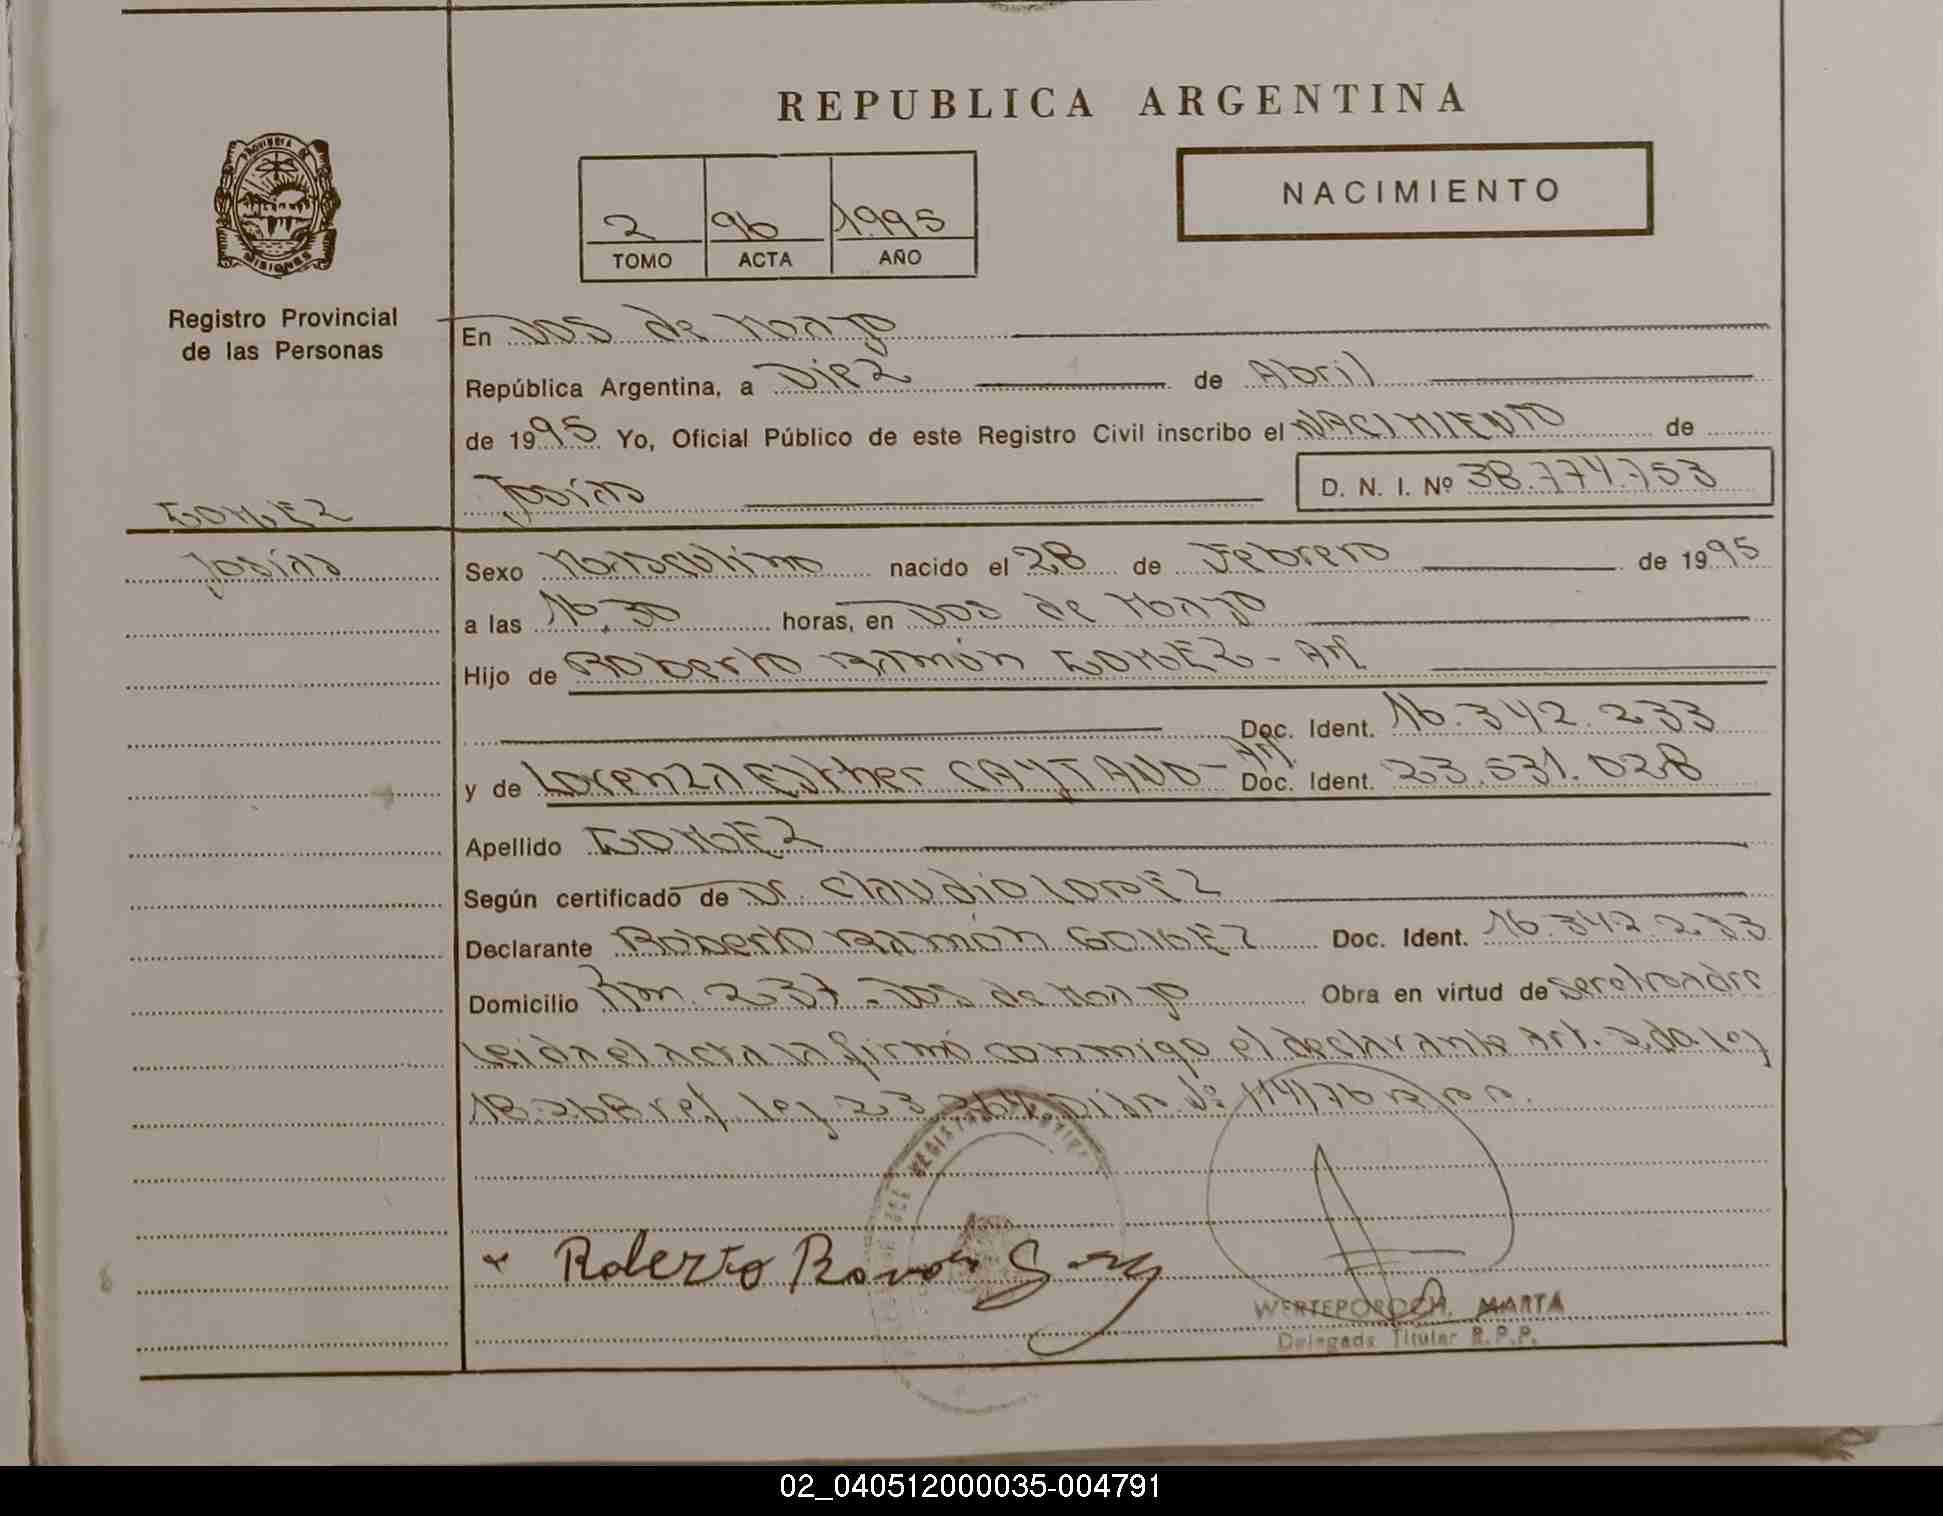 REPUBLICA ARGENTINA
PROVINCIA DE
MISIONES
Registro Provincial
de las Personas
2 96 1995
TOMO ACTA AÑO
NACIMIENTO
En Dos de Mayo
República Argentina, a Diez de Abril
de 1995 Yo, Oficial Público de este Registro Civil inscribo el NACIMIENTO de
Josías D. N. I. Nº 38.774.753
GOMEZ
Josías
Sexo Masculino nacido el 28 de Febrero de 1995
a las 16.30 horas, en Dos de Mayo
Hijo de Roberto Ramón GOMEZ - Arg
Doc. Ident. 16.342.233
y de Lorenza Esther CAYTANO - Arg Doc. Ident. 23.531.028
Apellido GOMEZ
Según certificado de Dr. Claudio LOPEZ
Declarante Roberto Ramón GOMEZ Doc. Ident. 16.342.233
Domicilio Km. 237 - Dos de Mayo Obra en virtud de ser el padre
Leida el acta la firmó conmigo el declarante Art. 2 da ley
18.268 ref ley 23.264 Nº 114/76
Roberto Ramón Gomez
WERTEPOROCH, MARTA
Delegada Titular R.P.P.
02_040512000035-004791